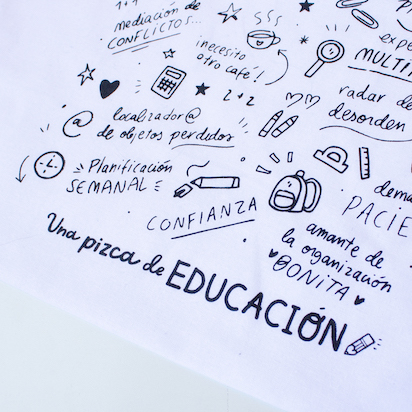 1+1
mediación de
CONFLICTOS...
¡necesito
otro café!
MULTI
2+2
radar de
desorden
localizador@
de objetos perdidos
@
Planificación
SEMANAL
CONFIANZA
PACIE
amante de
la organización
BONITA
Una pizca de EDUCACIÓN